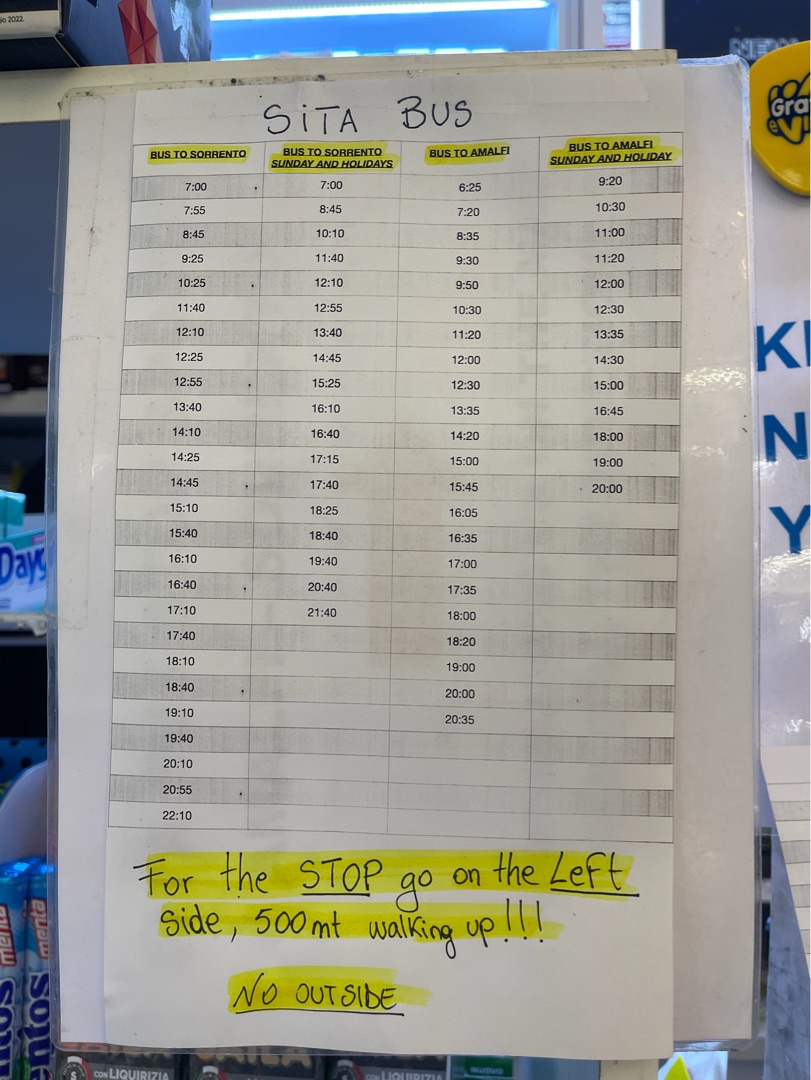 io 2022.
SiTA BUS
BUS TO SORRENTO BUS TO SORRENTO SUNDAY AND HOLIDAYS BUS TO AMALFI BUS TO AMALFI SUNDAY AND HOLIDAY
7:00 7:00 6:25 9:20
7:55 8:45 7:20 10:30
8:45 10:10 8:35 11:00
9:25 11:40 9:30 11:20
10:25 12:10 9:50 12:00
11:40 12:55 10:30 12:30
12:10 13:40 11:20 13:35
12:25 14:45 12:00 14:30
12:55 15:25 12:30 15:00
13:40 16:10 13:35 16:45
14:10 16:40 14:20 18:00
14:25 17:15 15:00 19:00
14:45 17:40 15:45 20:00
15:10 18:25 16:05
15:40 18:40 16:35
16:10 19:40 17:00
16:40 20:40 17:35
17:10 21:40 18:00
17:40 18:20
18:10 19:00
18:40 20:00
19:10 20:35
19:40
20:10
20:55
22:10
For the STOP go on the Left
side, 500mt walking up!!!
NO OUTSIDE
Gra
e Vi
KI
N
Y
Days
menta
entos
CON LIQUIRIZIA
CON LIQUIRIZIA
NUOVO